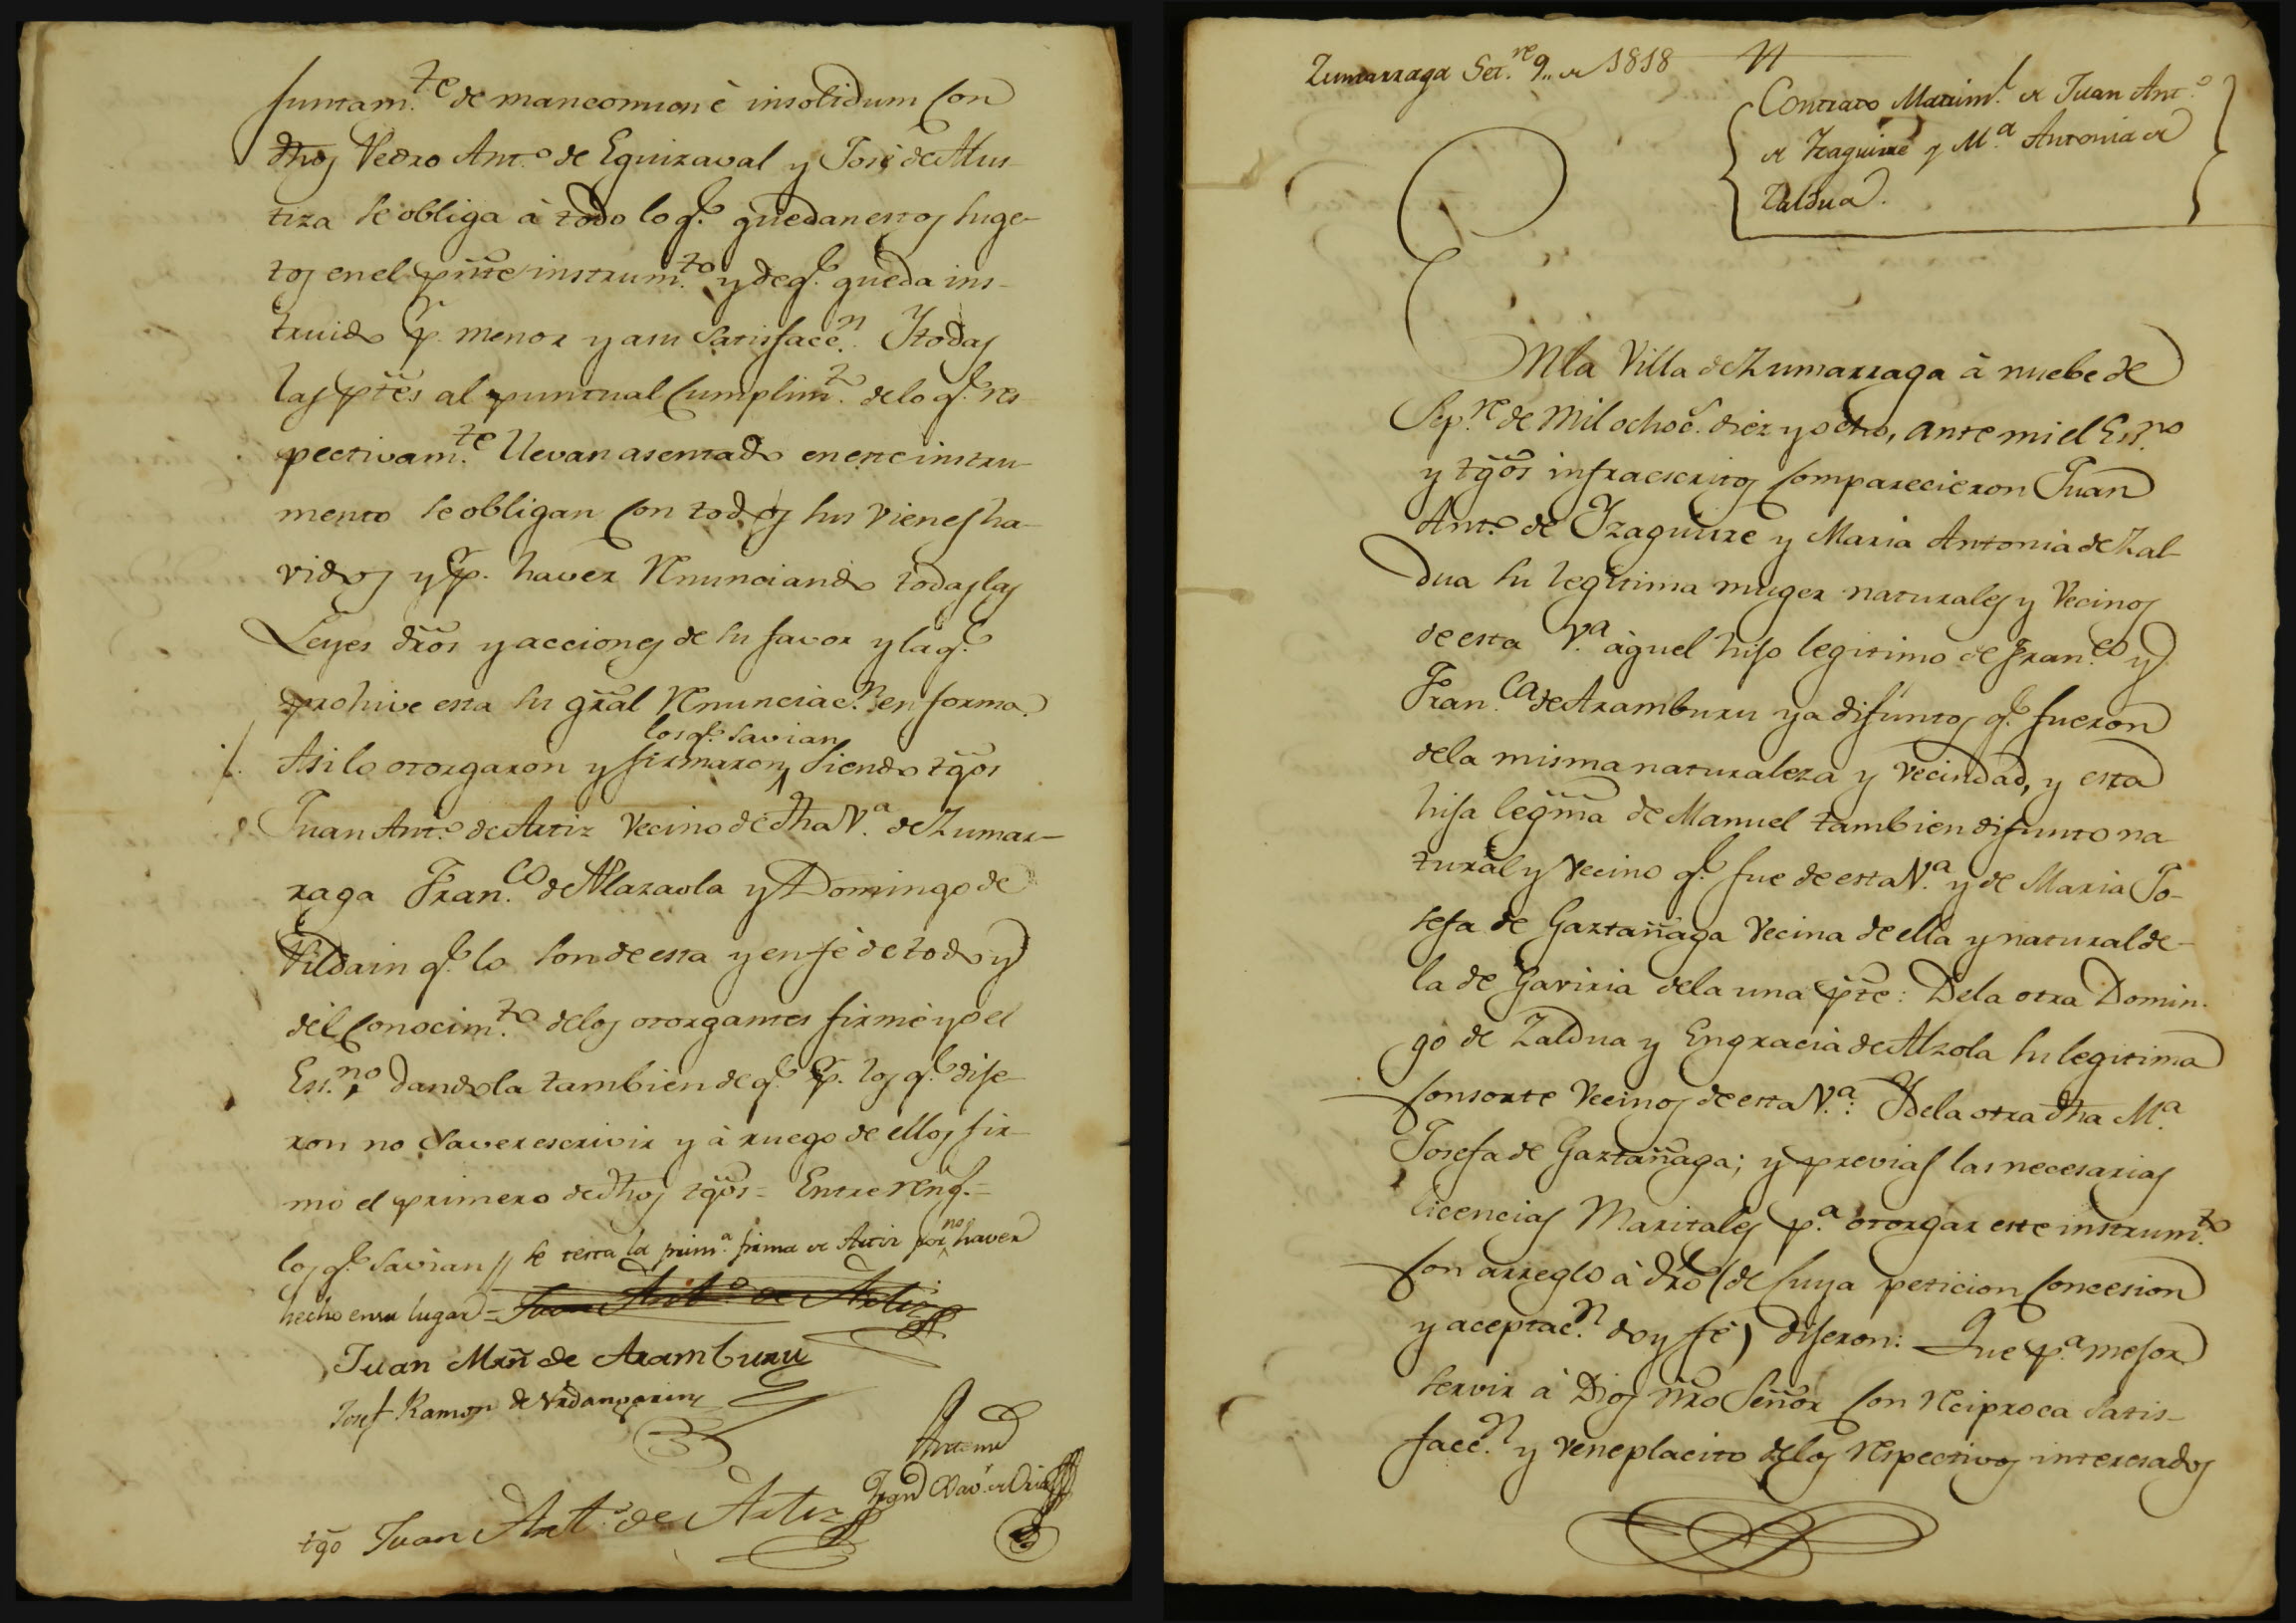 Juntam.te de mancomun è insolidum con
dhos Pedro Ant.o de Eguizaval y José de Mus-
tiza se obliga à todo lo q.e quedan estos suge-
tos en el pñte instrum.to y de q.e queda ins-
truido p.r menor y a su satisfacc.n Y todas
las ptes al puntual cumplim.to de lo q.e res-
pectivam.te llevan asentado en este instru-
mento se obligan con todos sus vienes ha-
vidos y p.r haver renunciando todas las
Leyes dros y acciones de su favor y la q.e
prohive esta su gral renunciac.n en forma.
los q.e savian
Asi lo otorgaron y firmaron, siendo tgos
Juan Ant.o de Artiz vecino de dha V.a de Zumar-
raga Fran.co de Alazaola y Domingo de
Vildain q.e lo son de esta y en fé de todo y
del conocim.to de los otorgantes firmé yo el
Ess.no dandola tambien de q.e p.r los q.e dije-
ron no saver escrivir y à ruego de ellos fir-
mó el primero de dhos tgos = Entre reng.s =
los q.e savian // se testa la prim.a firma de Artiz por no haver
hecho en su lugar = Juan Ant.o de Artiz
Juan Mrñ de Aramburu
Josef Ramon de Urdangarin
Ante mi
tgo Juan Ant.o de Artiz
Zumarraga Set.re 9 de 1818
Contrato Matrim.l de Juan Ant.o
de Yzaguirre y M.a Antonia de
Zaldua.
En la Villa de Zumarraga à nuebe de
Sep.re de mil ochoc.s diez y ocho, ante mi el Ess.no
y tgos infraescritos comparecieron Juan
Ant.o de Yzaguirre y Maria Antonia de Zal-
dua su legitima muger naturales y vecinos
de esta V.a aquel hijo legitimo de Fran.co y
Fran.ca de Aramburu ya difuntos q.e fueron
de la misma naturaleza y vecindad, y esta
hija legma de Manuel tambien difunto na-
tural y vecino q.e fue de esta V.a y de Maria Jo-
sefa de Gaztañaga vecina de ella y natural de
la de Gaviria de la una pte: De la otra Domin-
go de Zaldua y Engracia de Alzola su legitima
consorte vecinos de esta V.a: Y de la otra dha M.a
Josefa de Gaztañaga; y previas las necesarias
licencias maritales p.a otorgar este instrum.to
con arreglo à dro (de cuya peticion concesion
y aceptac.n doy fé) dijeron: Que p.a mejor
servir à Dios nro Señor con reciproca satis-
facc.n y veneplacito de los respectivos interesados